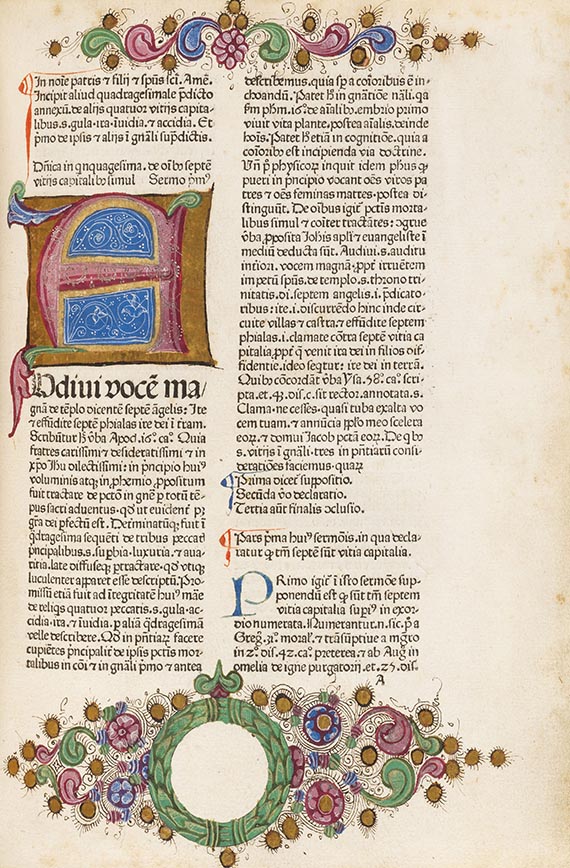 In noīe patris & filij & spūs sc̄i. Amē.
Incipit aliud quadragesimale p̄dicto
annexū. de alijs quatuor vitijs capita-
libus. s. gula. ira. īuidia. & accidia. Et
pͦmo de ipsis & alijs ī gn̄ali supͣdictis.
Dn̄ica in qnquagesima. de oībꝰ septē
vitijs capitalibꝰ simul Sermo pͥmꝰ
Audiui vocē ma/
gnā de tēplo dicentē septē āgelis: Ite
& effūdite septē phialas ire dei ī t̄ram.
Scribūtur hͨ v̄ba Apoc. 16.º ca.º Quia
fratres carissimi & desideratissimi & in
xp̄o Ihū dilectissimi: in pͥncipio huiꝰ
voluminis atqꝫ in phemio ꝓpositum
fuit tractare de pctō in gn̄e ꝑ totū tē-
pus sacri aduentus. qd ut euident ꝑ
gr̄a dei ꝑfectū est. Det̄minatūqꝫ fuit ī
qͣdragesima sequēti de tribus peccatꝭ
pͥncipalibus. s. suꝑbia. luxuria. & aua-
ritia. late diffuseqꝫ ꝑtractare. qd vtiqꝫ
luculenter apparet esse descriptū. Pro-
missū etiā fuit ad ītegritatē huiꝰ māe
de reliqs quatuor peccatis. s. gula. ac-
cidia. ira. & īuidia. ꝑ aliā qͣdragesimā
velle describere. Qd in pn̄tiaꝝ facere
cupiētes pͥncipalit̄ de ipsis pctīs mor-
talibus in cōi & in gn̄ali pͥmo & antea
describemus. quia sꝑ a cōioribus ē in-
choandū. Patet hͨ in gn̄atiōe nāli. qa
fm ph̄m. 16.º de aīalibꝰ. embrio primo
viuit vita plante. postea aīalis. deinde
hoīs. Patet hͨ etiā in cognitiōe. quia a
cōioribꝰ est incipienda via doctrine.
Vn̄ pͥ physicoꝝ inquit idem ph̄us qͥ
pueri in pͥncipio vocant oēs viros pa
tres & oēs feminas matres. postea di-
stinguūt. De oībus igit̄ pctīs morta-
libus simul & cōiter tractātes: ꝯgrue
v̄ba ꝓposita Iohis apl̄i & euangeliste ī
mediū deducta sūt. Audiui. s. auditu
int̄iori. vocem magnā. ꝓpt̄ irruētem
impetū spūs. de templo. s. throno tri-
nitatis. dī. septem angelis. i. p̄dicato-
ribus: ite. i. discurrēdo hinc inde cir-
cuite villas & castra. & effūdite septem
phialas. i. clamate cōtra septē vitia ca
pitalia. ꝓpt̄ q̄ venit ira dei in filios dif-
fidentie. ideo seqt̄ur: ire dei in terrā.
Quibꝰ cōcordāt v̄ba Ysa. 58.º ca.º scri-
pta. et. 43. dis. c. sit rector. annotata. s.
Clama. ne cesses. quasi tuba exalta vo
cem tuam. & annūcia ꝓplo meo scelera
eoꝝ. & domui Jacob pctā eoꝝ. De qͥbꝰ
s. vitijs ī gn̄ali. tres in pn̄tiarū consi-
derātiōes faciemus. quaꝝ
Prima dicet̄ suppositio.
Secūda v̄o declaratio.
Tertia aūt finalis ꝯclusio.
Pars pͥma huiꝰ sermōis. in qua decla-
ratur qͥ tm̄ septē sūt vitia capitalia.
PRimo igit̄ ī isto sermōe sup-
ponendū est qͥ sūt tm̄ septem
vitia capitalia supͥꝰ in exor-
dio numerata. Numerantur. n. sic. pͥ a
Greg.º 31.º moral.º & trāsūptiue a mgr̄o
in 2.º dis. 42. ca.º p̄terea. & ab Aug.º in
omelia de igne purgatorij. et. 25. dis.
A